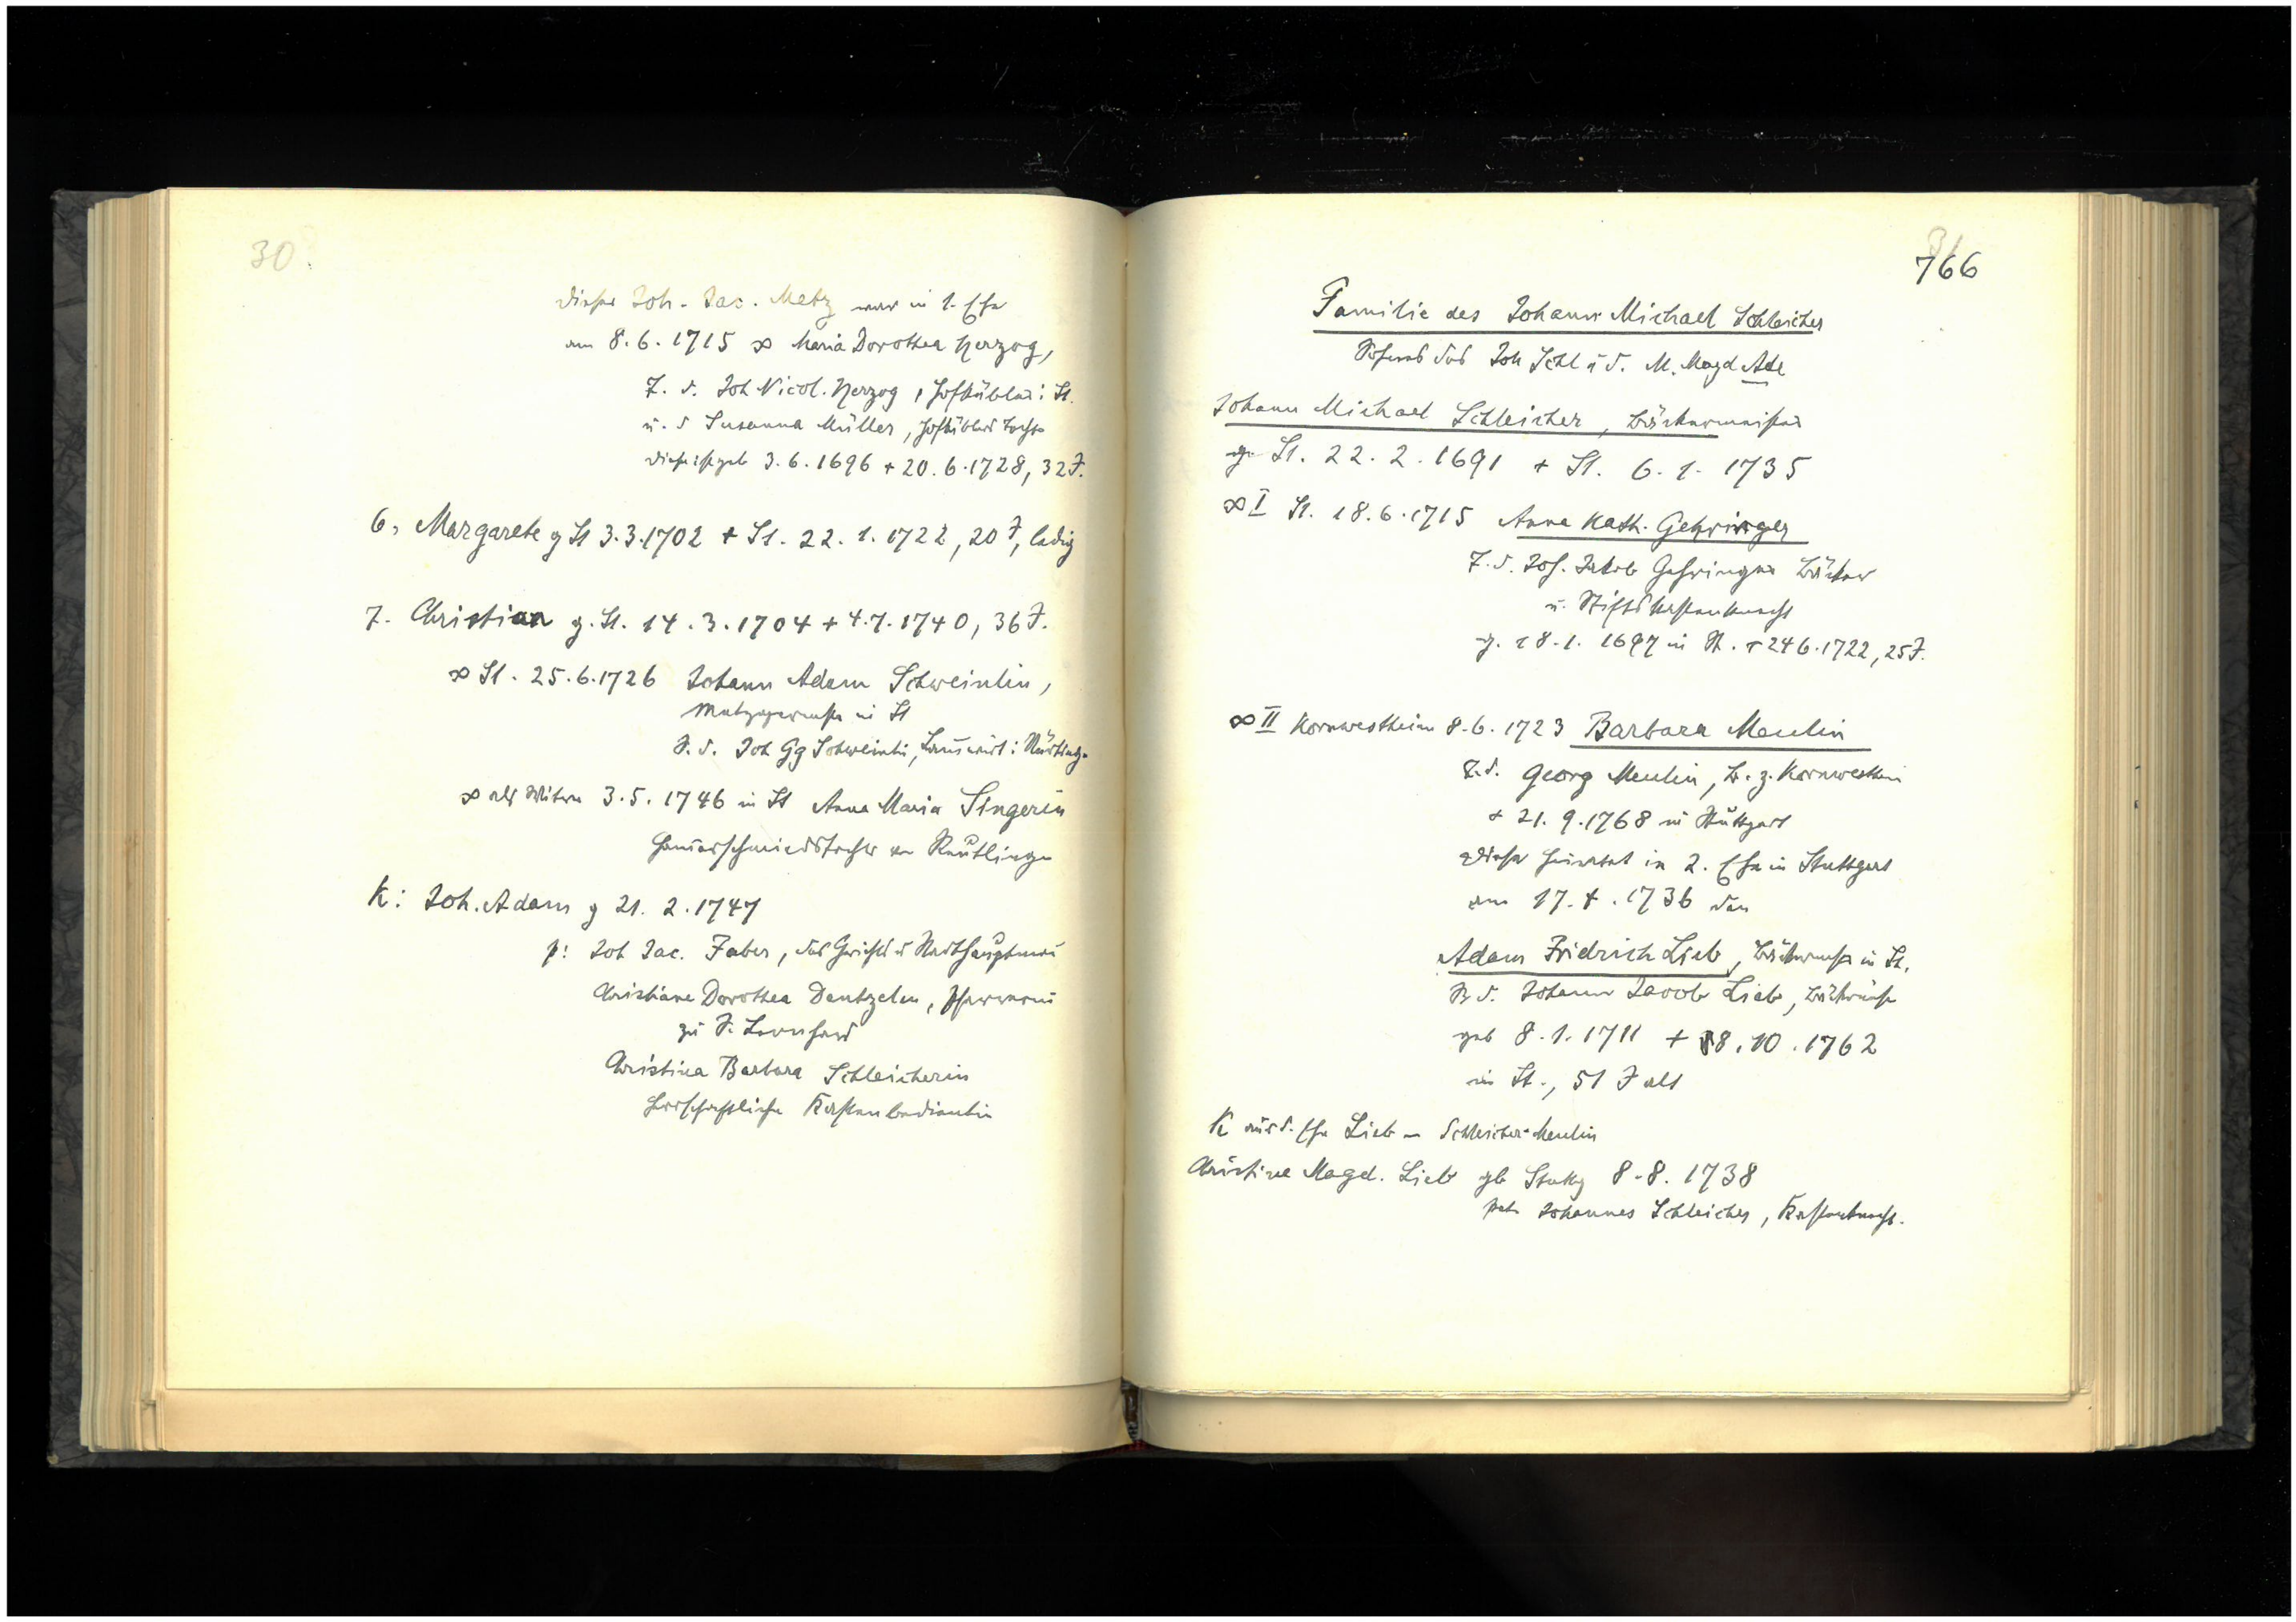 30.
Dieser Joh. Jac. Metz war in 1. Ehe
am 8.6.1715 ∞ Maria Dorothea Herzog,
T. d. Joh Nicol. Herzog, Hofkübler i. St.
u. d Susanna Müller, Hofküblers Tochter
diese ist geb 3.6.1696 + 20.6.1728, 32 J.
6, Margarete g St 3.3.1702 + St. 22.1.1722, 20 J, ledig
7. Christian g. St. 14.3.1704 + 4.7.1740, 36 J.
∞ St. 25.6.1726 Johann Adam Schweinlin,
Metzgermstr in St
S. d. Joh Gg Schweinlin, i Nürtingen
∞ als Witwer 3.5.1746 in St Anna Maria Singerin
Hammerschmiedstochter von Reutlingen
K: Joh. Adam g 21.2.1747
p: Joh Jac. Faber, des Gerichts u Stadthauptmann
Christiane Dorothea Dentzelen, Pfarrerin
zu S. Leonhard
Christina Barbara Schleicherin
Herrschaftliche Kastenbedientin
31
766
Familie des Johann Michael Schleicher
Sohnes des Joh Schl u d. M. Magd Ade
Johann Michael Schleicher, Bäckermeister
g. St. 22.2.1691 + St. 6.1.1735
∞ I St. 18.6.1715 Anna Kath. Gehringer
T. d. Joh. Jakob Gehringer Bäcker
u. Stiftskastenknecht
g. 18.1.1697 in St. + 24 6.1722, 25 J.
∞ II Kornwestheim 8.6.1723 Barbara Meulin
T. d. Georg Meulin, B. z. Kornwestheim
+ 21.9.1768 in Stuttgart
diese heiratet in 2. Ehe in Stuttgart
am 17.4.1736 den
Adam Fridrich Lieb, Bäckermstr in St.
S d. Johann Jacob Lieb, Bäckermstr
geb 8.1.1711 + 8.10.1762
in St., 51 J alt
K aus d. Ehe Lieb - Schleicher-Meulin
Christine Magd. Lieb geb Stuttg 8.8.1738
Pate Johannes Schleicher, Kastenknecht.